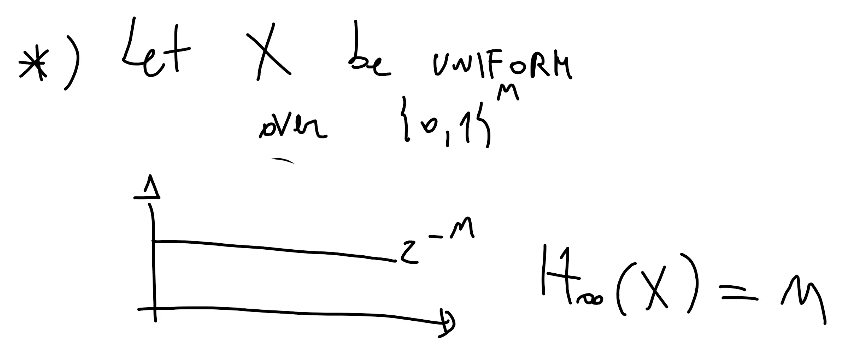 *) Let X be UNIFORM
over {0,1}^n
2^-n
H∞(X) = n